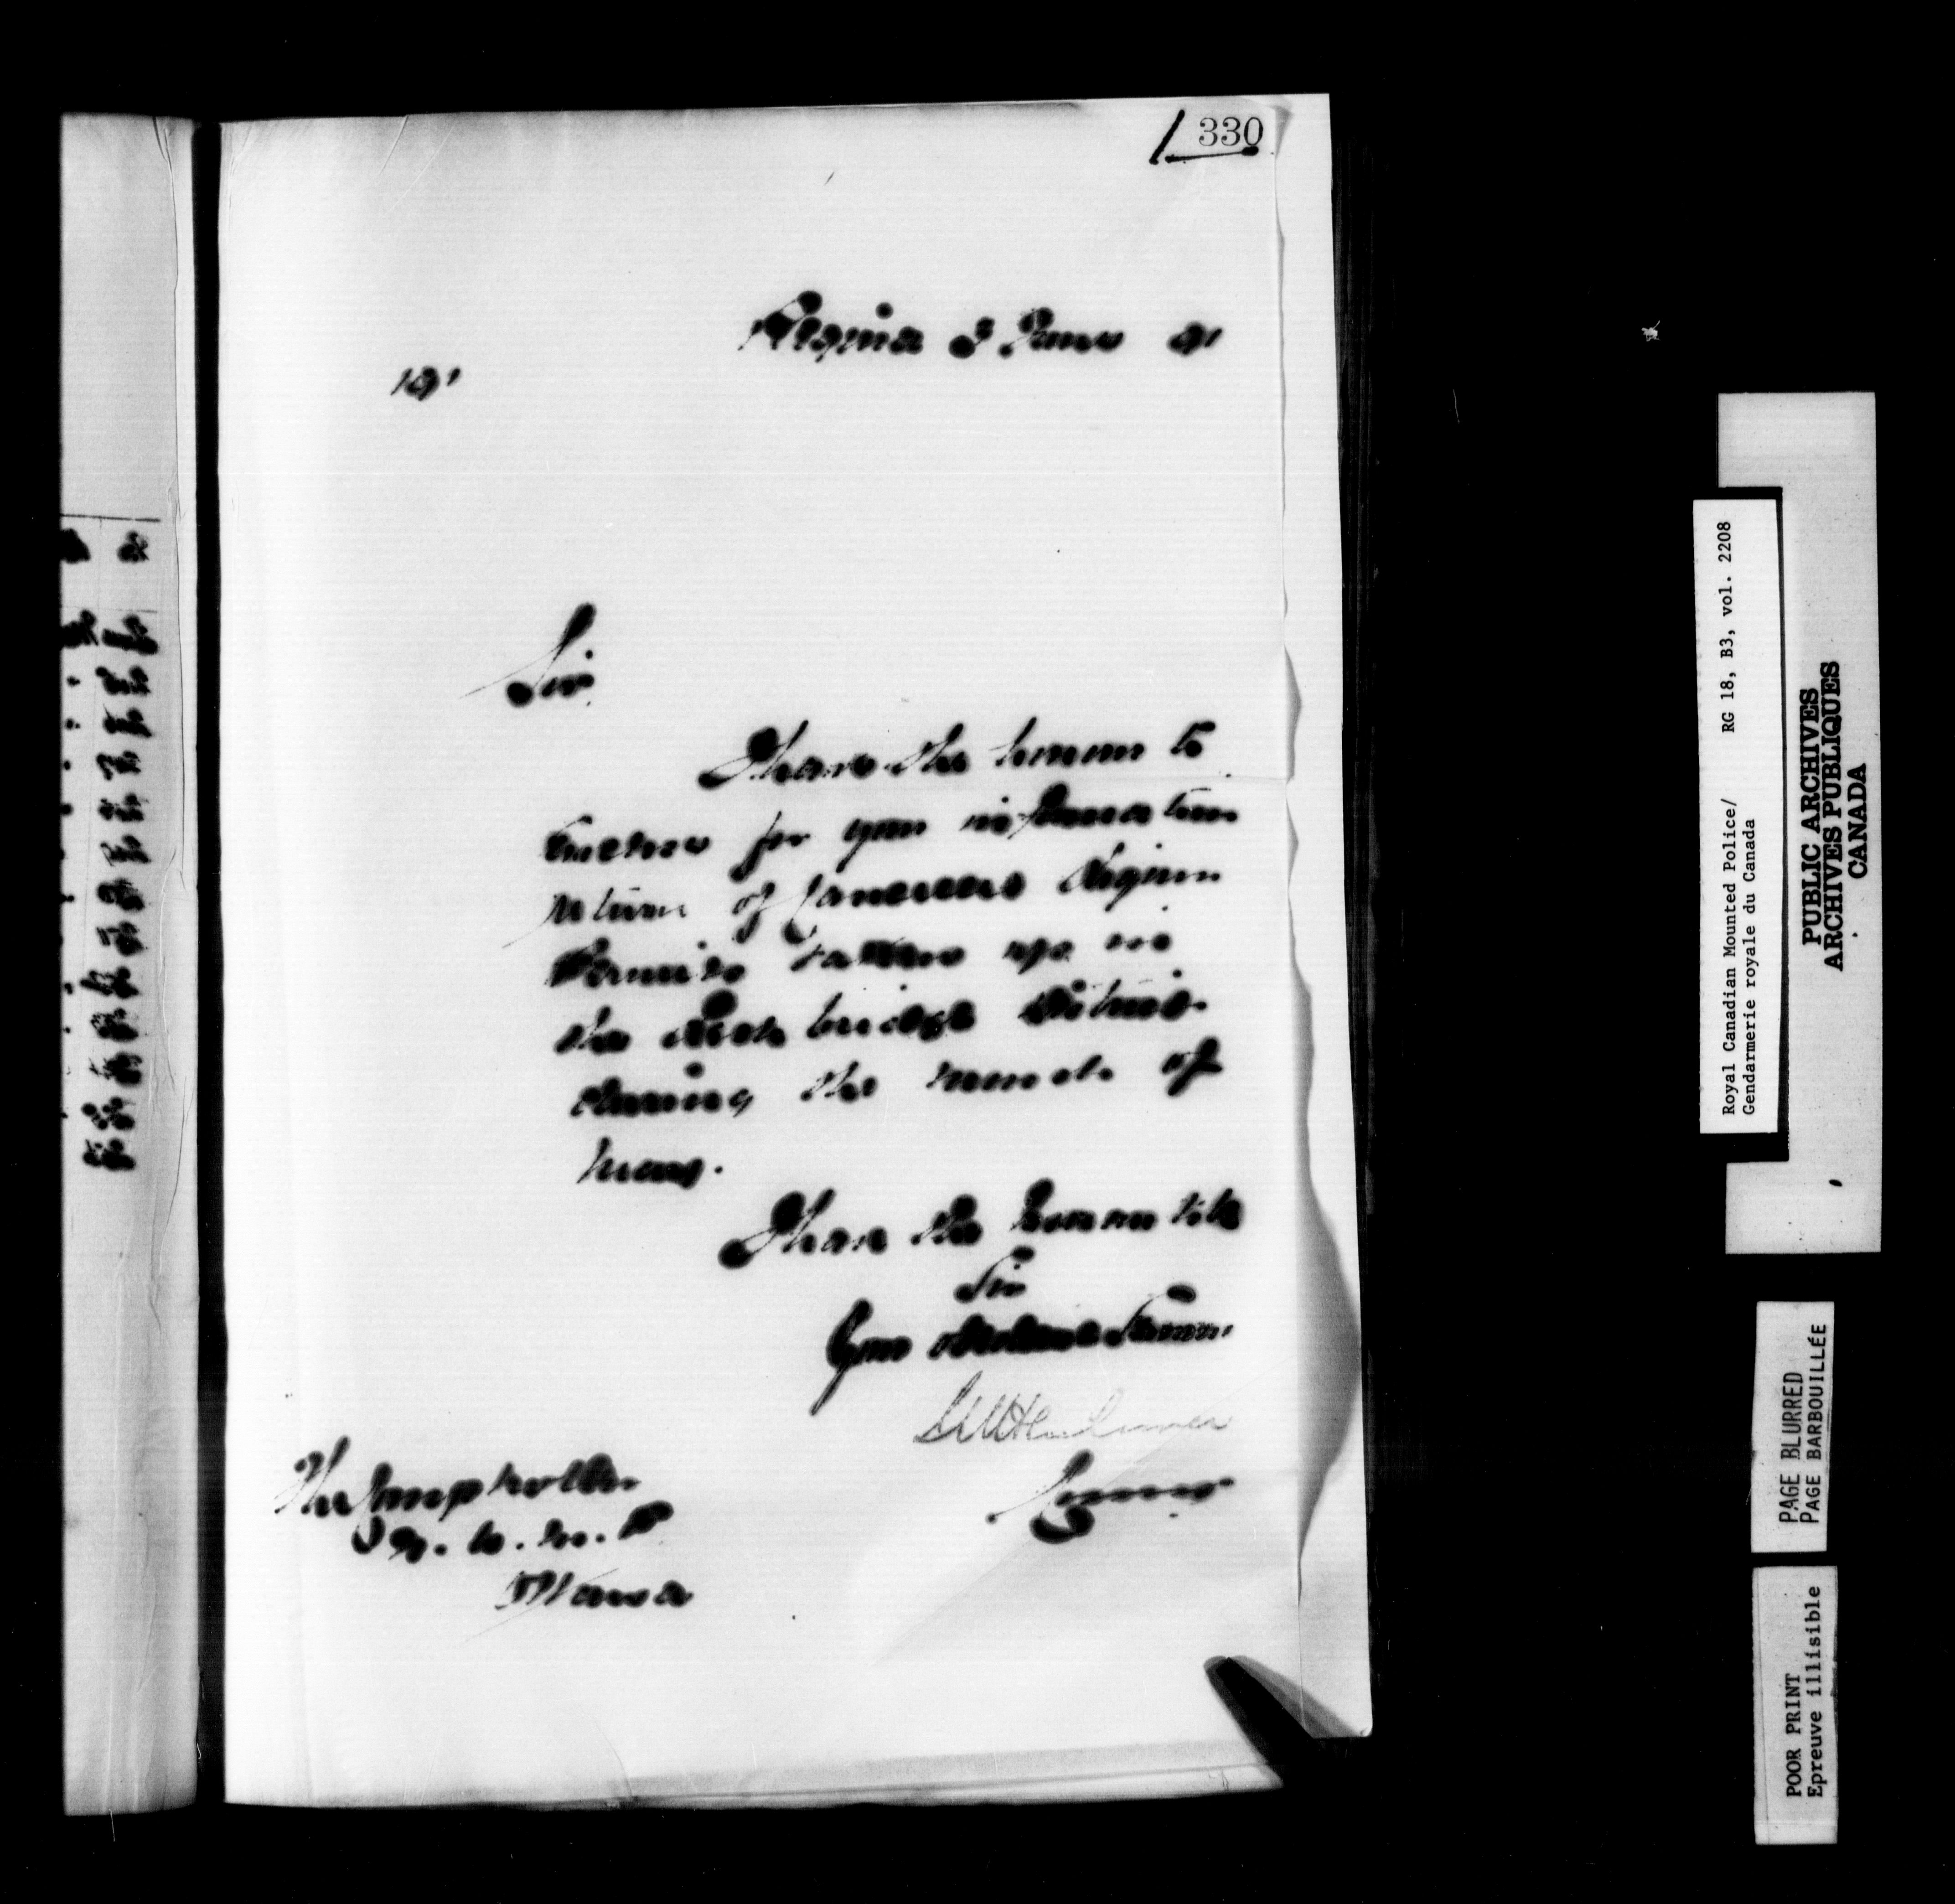 330
Regina 3 June 91
191
Sir
I have the honour to
enclose for your information
return of Cancelled Liquor
Permits taken up in
the Leth bridge District
during the month of
May.
I have the honour to be
Sir
Your obedient Servant
Commr
The Comptroller
N. W. M. P
Ottawa
Royal Canadian Mounted Police/ RG 18, B3, vol. 2208
Gendarmerie royale du Canada
PUBLIC ARCHIVES
ARCHIVES PUBLIQUES
CANADA
PAGE BLURRED
PAGE BARBOUILLÉE
POOR PRINT
Epreuve illisible